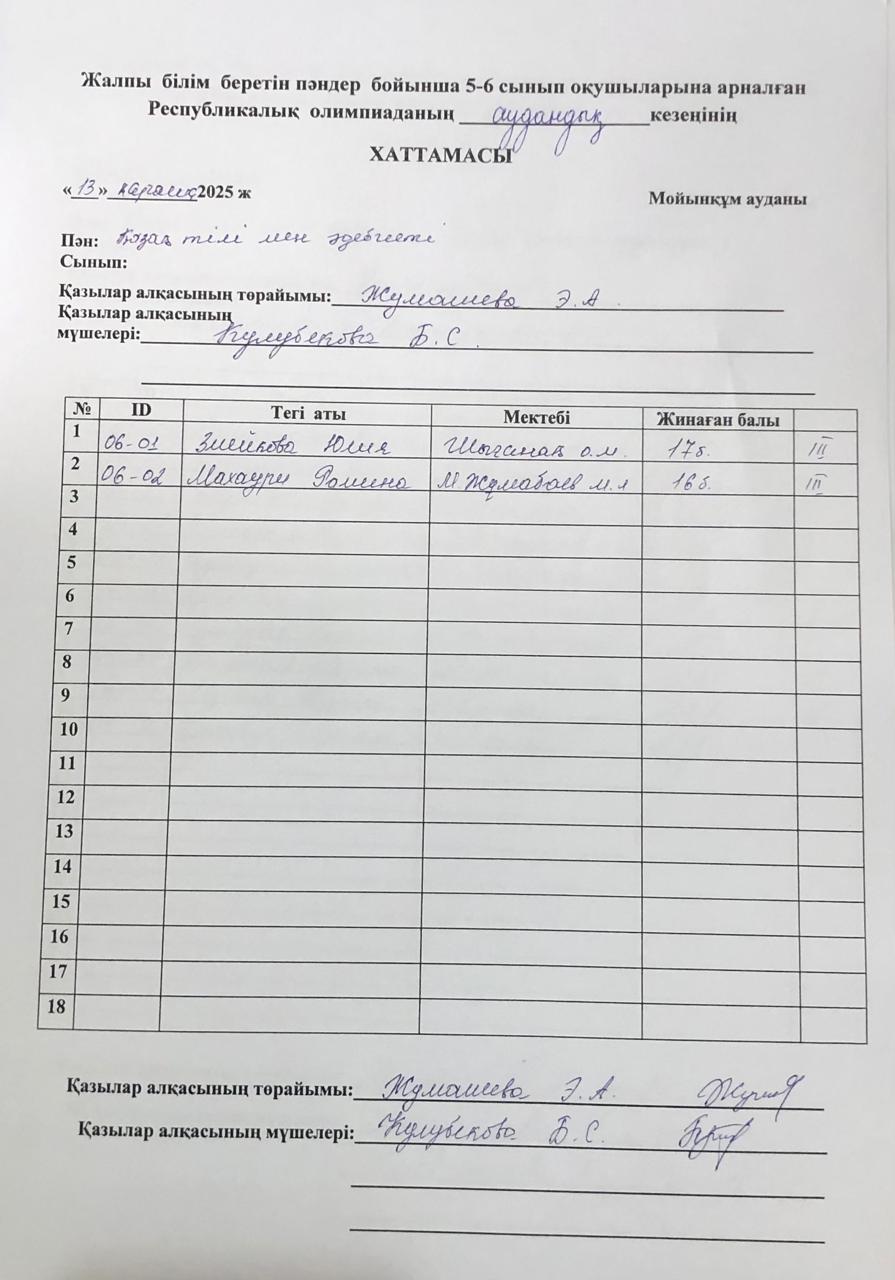 Жалпы білім беретін пәндер бойынша 5-6 сынып оқушыларына арналған
Республикалық олимпиаданың аудандық кезеңінің
ХАТТАМАСЫ
«13» қараша 2025 ж Мойынқұм ауданы
Пән: Қазақ тілі мен әдебиеті
Сынып:
Қазылар алқасының төрайымы: Жумашева Э.А.
Қазылар алқасының
мүшелері: Кулубекова Б.С.
№ ID Тегі аты Мектебі Жинаған балы
1 06-01 Змейкова Юлия Шығанақ о.м. 17б. III
2 06-02 Махаури Ромина М.Жұмабаев 16б. III
3
4
5
6
7
8
9
10
11
12
13
14
15
16
17
18
Қазылар алқасының төрайымы: Жумашева Э.А.
Қазылар алқасының мүшелері: Кулубекова Б.С.